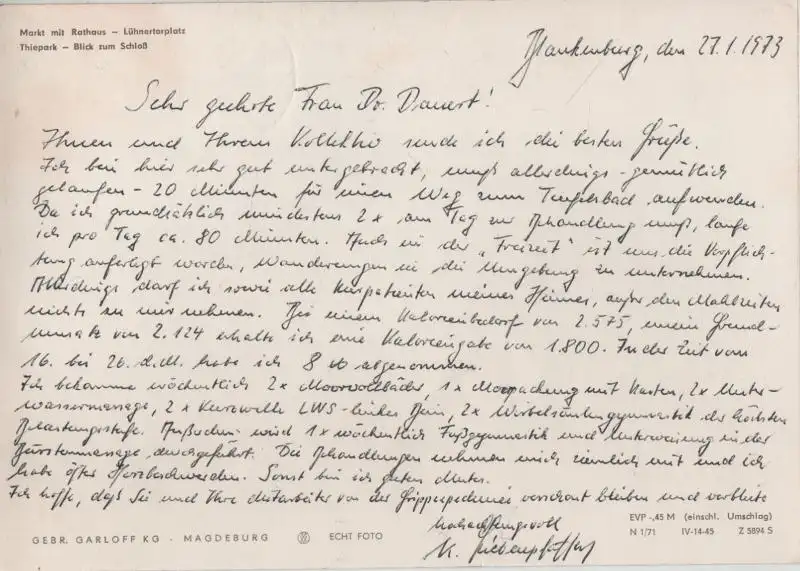 Markt mit Rathaus – Lühnertorplatz
Thiepark – Blick zum Schloß
Blankenburg, den 27.1.1973
Sehr geehrte Frau Dr. Dauert!
Ihnen und Ihrem Kollektiv sende ich die besten Grüße.
Ich bin hier sehr gut untergebracht, muß allerdings - gemütlich
gelaufen - 20 Minuten für einen Weg zum Teufelsbad aufwenden.
Da ich grundsätzlich mindestens 2 x am Tag zur Behandlung muß, laufe
ich pro Tag ca. 80 Minuten. Auch in der "Freizeit" ist uns die Verpflich-
tung auferlegt worden, Wanderungen in die Umgebung zu unternehmen.
Allerdings darf ich sowie alle Kurpatienten meines Heimes, außer den Mahlzeiten
nichts zu mir nehmen. Bei einem Kalorienbedarf von 2.575, mein Grund-
umsatz von 2.124 erhalte ich eine Kalorieneingabe von 1.800. In der Zeit vom
16. bis 26. d.M. habe ich 8 abgenommen.
Ich bekomme wöchentlich 2x Moorvollbäder, 1x Moorpackung mit Kasten, 2x Unter-
wassermassage, 2x Kurzwelle LWS-linkes Bein, 2x Wirbelsäulengymnastik der höchsten
Belastungsstufe. Außerdem wird 1x wöchentlich Fußgymnastik und Unterweisung in der
Bürstenmassage durchgeführt. Die Behandlungen nehmen mich ziemlich mit und ich
habe öfter Herzbeschwerden. Sonst bin ich guten Mutes.
Ich hoffe, daß Sie und Ihre Mitarbeiter von der Grippeepidemie verschont bleiben und verbleibe
hochachtungsvoll
K.
GEBR. GARLOFF KG · MAGDEBURG ECHT FOTO
EVP -,45 M (einschl. Umschlag)
N 1/71 IV-14-45 Z 5894 S